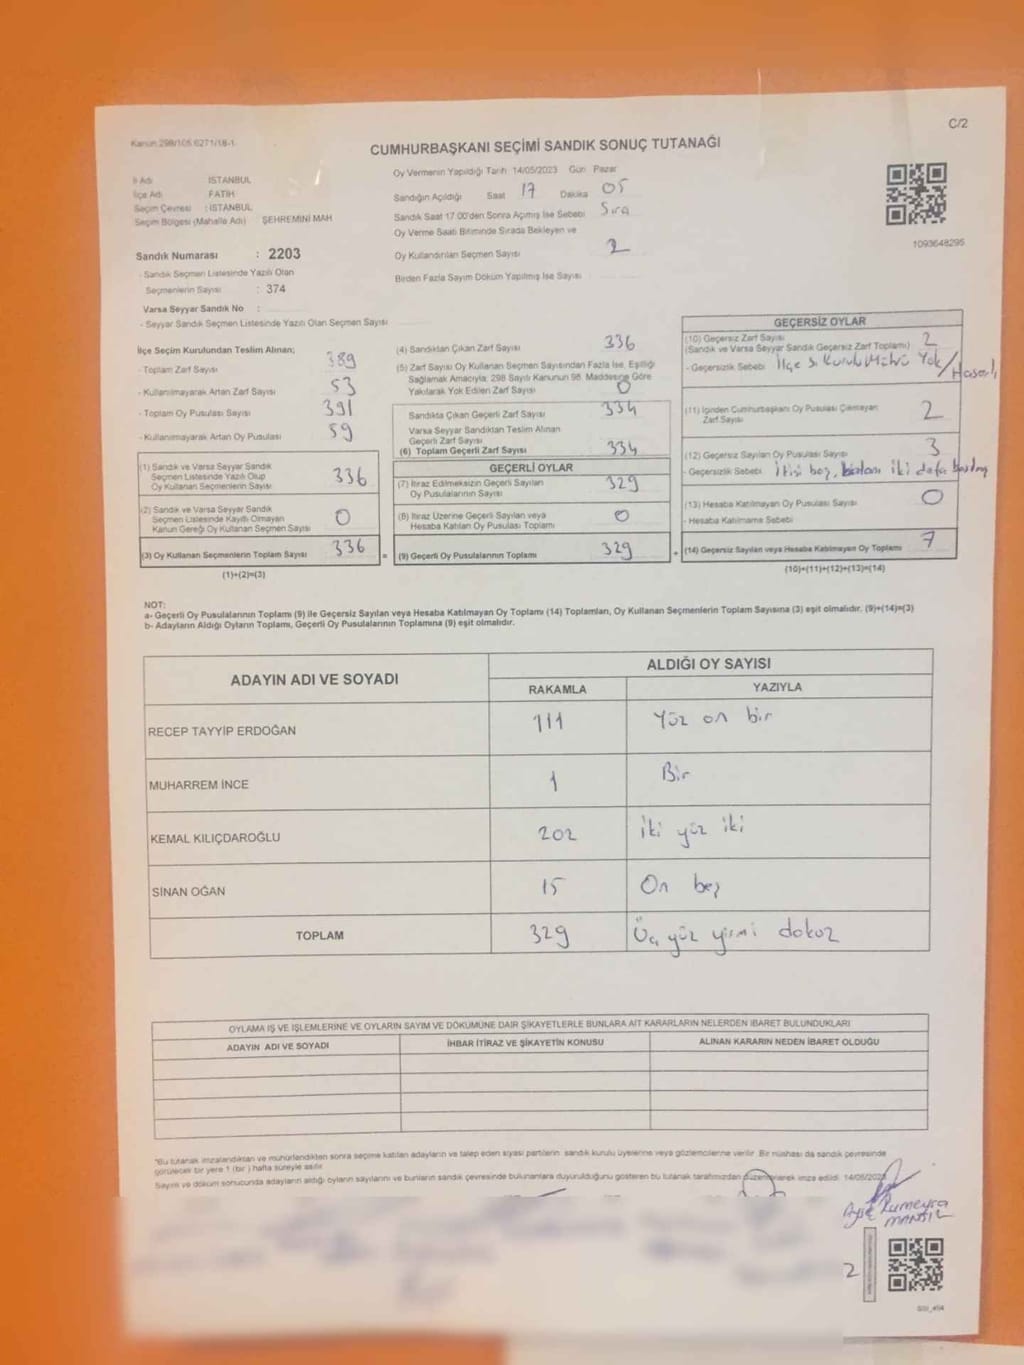 C/2
Kanun 298/105 6271/18-1
CUMHURBAŞKANI SEÇİMİ SANDIK SONUÇ TUTANAĞI
İl Adı İSTANBUL
İlçe Adı FATİH
Seçim Çevresi : İSTANBUL
Seçim Bölgesi (Mahalle Adı) ŞEHREMİNİ MAH
Sandık Numarası : 2203
- Sandık Seçmen Listesinde Yazılı Olan
Seçmenlerin Sayısı : 374
Varsa Seyyar Sandık No :
- Seyyar Sandık Seçmen Listesinde Yazılı Olan Seçmen Sayısı
Oy Vermenin Yapıldığı Tarih 14/05/2023 Gün Pazar
Sandığın Açıldığı Saat 17 Dakika 05
Sandık Saat 17.00'den Sonra Açılmış İse Sebebi Sıra
Oy Verme Saati Bitiminde Sırada Bekleyen ve
Oy Kullandırılan Seçmen Sayısı 2
Birden Fazla Sayım Döküm Yapılmış İse Sayısı
1093648295
İlçe Seçim Kurulundan Teslim Alınan;
- Toplam Zarf Sayısı 389
- Kullanılmayarak Artan Zarf Sayısı 53
- Toplam Oy Pusulası Sayısı 391
- Kullanılmayarak Artan Oy Pusulası 59
(1) Sandık ve Varsa Seyyar Sandık
Seçmen Listesinde Yazılı Olup
Oy Kullanan Seçmenlerin Sayısı 336
(2) Sandık ve Varsa Seyyar Sandık
Seçmen Listesinde Kayıtlı Olmayan
Kanun Gereği Oy Kullanan Seçmen Sayısı 0
(3) Oy Kullanan Seçmenlerin Toplam Sayısı 336
(1)+(2)=(3)
(4) Sandıktan Çıkan Zarf Sayısı 336
(5) Zarf Sayısı Oy Kullanan Seçmen Sayısından Fazla İse, Eşitliği
Sağlamak Amacıyla; 298 Sayılı Kanunun 98. Maddesine Göre
Yakılarak Yok Edilen Zarf Sayısı 0
Sandıkta Çıkan Geçerli Zarf Sayısı 334
Varsa Seyyar Sandıktan Teslim Alınan
Geçerli Zarf Sayısı
(6) Toplam Geçerli Zarf Sayısı 334
GEÇERLİ OYLAR
(7) İtiraz Edilmeksizin Geçerli Sayılan
Oy Pusulalarının Sayısı 329
(8) İtiraz Üzerine Geçerli Sayılan veya
Hesaba Katılan Oy Pusulası Toplamı 0
= (9) Geçerli Oy Pusulalarının Toplamı 329
GEÇERSİZ OYLAR
(10) Geçersiz Zarf Sayısı 2
(Sandık ve Varsa Seyyar Sandık Geçersiz Zarf Toplamı)
- Geçersizlik Sebebi İlçe S. Kurulu Mührü Yok / Hasarlı
(11) İçinden Cumhurbaşkanı Oy Pusulası Çıkmayan
Zarf Sayısı 2
(12) Geçersiz Sayılan Oy Pusulası Sayısı 3
- Geçersizlik Sebebi İkisi boş, iki defa
(13) Hesaba Katılmayan Oy Pusulası Sayısı 0
- Hesaba Katılmama Sebebi
+ (14) Geçersiz Sayılan veya Hesaba Katılmayan Oy Toplamı 7
(10)+(11)+(12)+(13)=(14)
NOT:
a- Geçerli Oy Pusulalarının Toplamı (9) ile Geçersiz Sayılan veya Hesaba Katılmayan Oy Toplamı (14) Toplamları, Oy Kullanan Seçmenlerin Toplam Sayısına (3) eşit olmalıdır. (9)+(14)=(3)
b- Adayların Aldığı Oyların Toplamı, Geçerli Oy Pusulalarının Toplamına (9) eşit olmalıdır.
ADAYIN ADI VE SOYADI ALDIĞI OY SAYISI
RAKAMLA YAZIYLA
RECEP TAYYİP ERDOĞAN 111 Yüz on bir
MUHARREM İNCE 1 Bir
KEMAL KILIÇDAROĞLU 202 İki yüz iki
SİNAN OĞAN 15 On beş
TOPLAM 329 Üç yüz yirmi dokuz
OYLAMA İŞ VE İŞLEMLERİNE VE OYLARIN SAYIM VE DÖKÜMÜNE DAİR ŞİKAYETLERLE BUNLARA AİT KARARLARIN NELERDEN İBARET BULUNDUKLARI
ADAYIN ADI VE SOYADI İHBAR İTİRAZ VE ŞİKAYETİN KONUSU ALINAN KARARIN NEDEN İBARET OLDUĞU
*Bu tutanak imzalandıktan ve mühürlendikten sonra seçime katılan adayların ve talep eden siyasi partilerin sandık kurulu üyelerine veya gözlemcilerine verilir. Bir nüshası da sandık çevresinde
görülecek bir yere 1 (bir) hafta süreyle asılır.
Sayım ve döküm sonucunda adayların aldığı oyların sayılarını ve bunların sandık çevresinde bulunanlara duyurulduğunu gösteren bu tutanak tarafımızdan düzenlenerek imza edildi. 14/05/2023
Ayşe Rumeysa
2